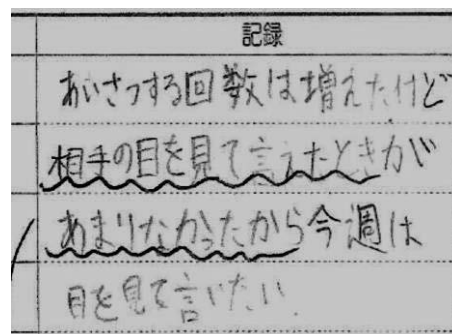 記録
あいさつする回数は増えたけど
相手の目を見て言えたときが
あまりなかったから今週は
目を見て言いたい.